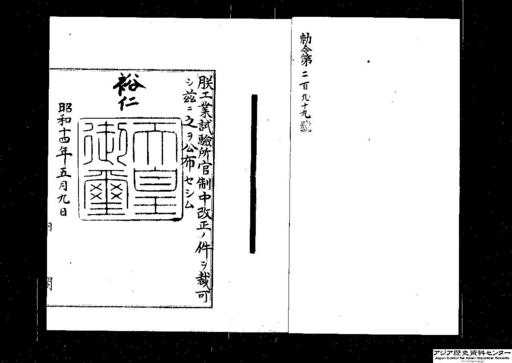 勅令第二百九十九號
朕工業試驗所官制中改正ノ件ヲ裁可
シ茲ニ之ヲ公布セシム
裕仁
天皇御璽
昭和十四年五月九日
内閣
アジア歴史資料センター
Japan Center for Asian Historical Records